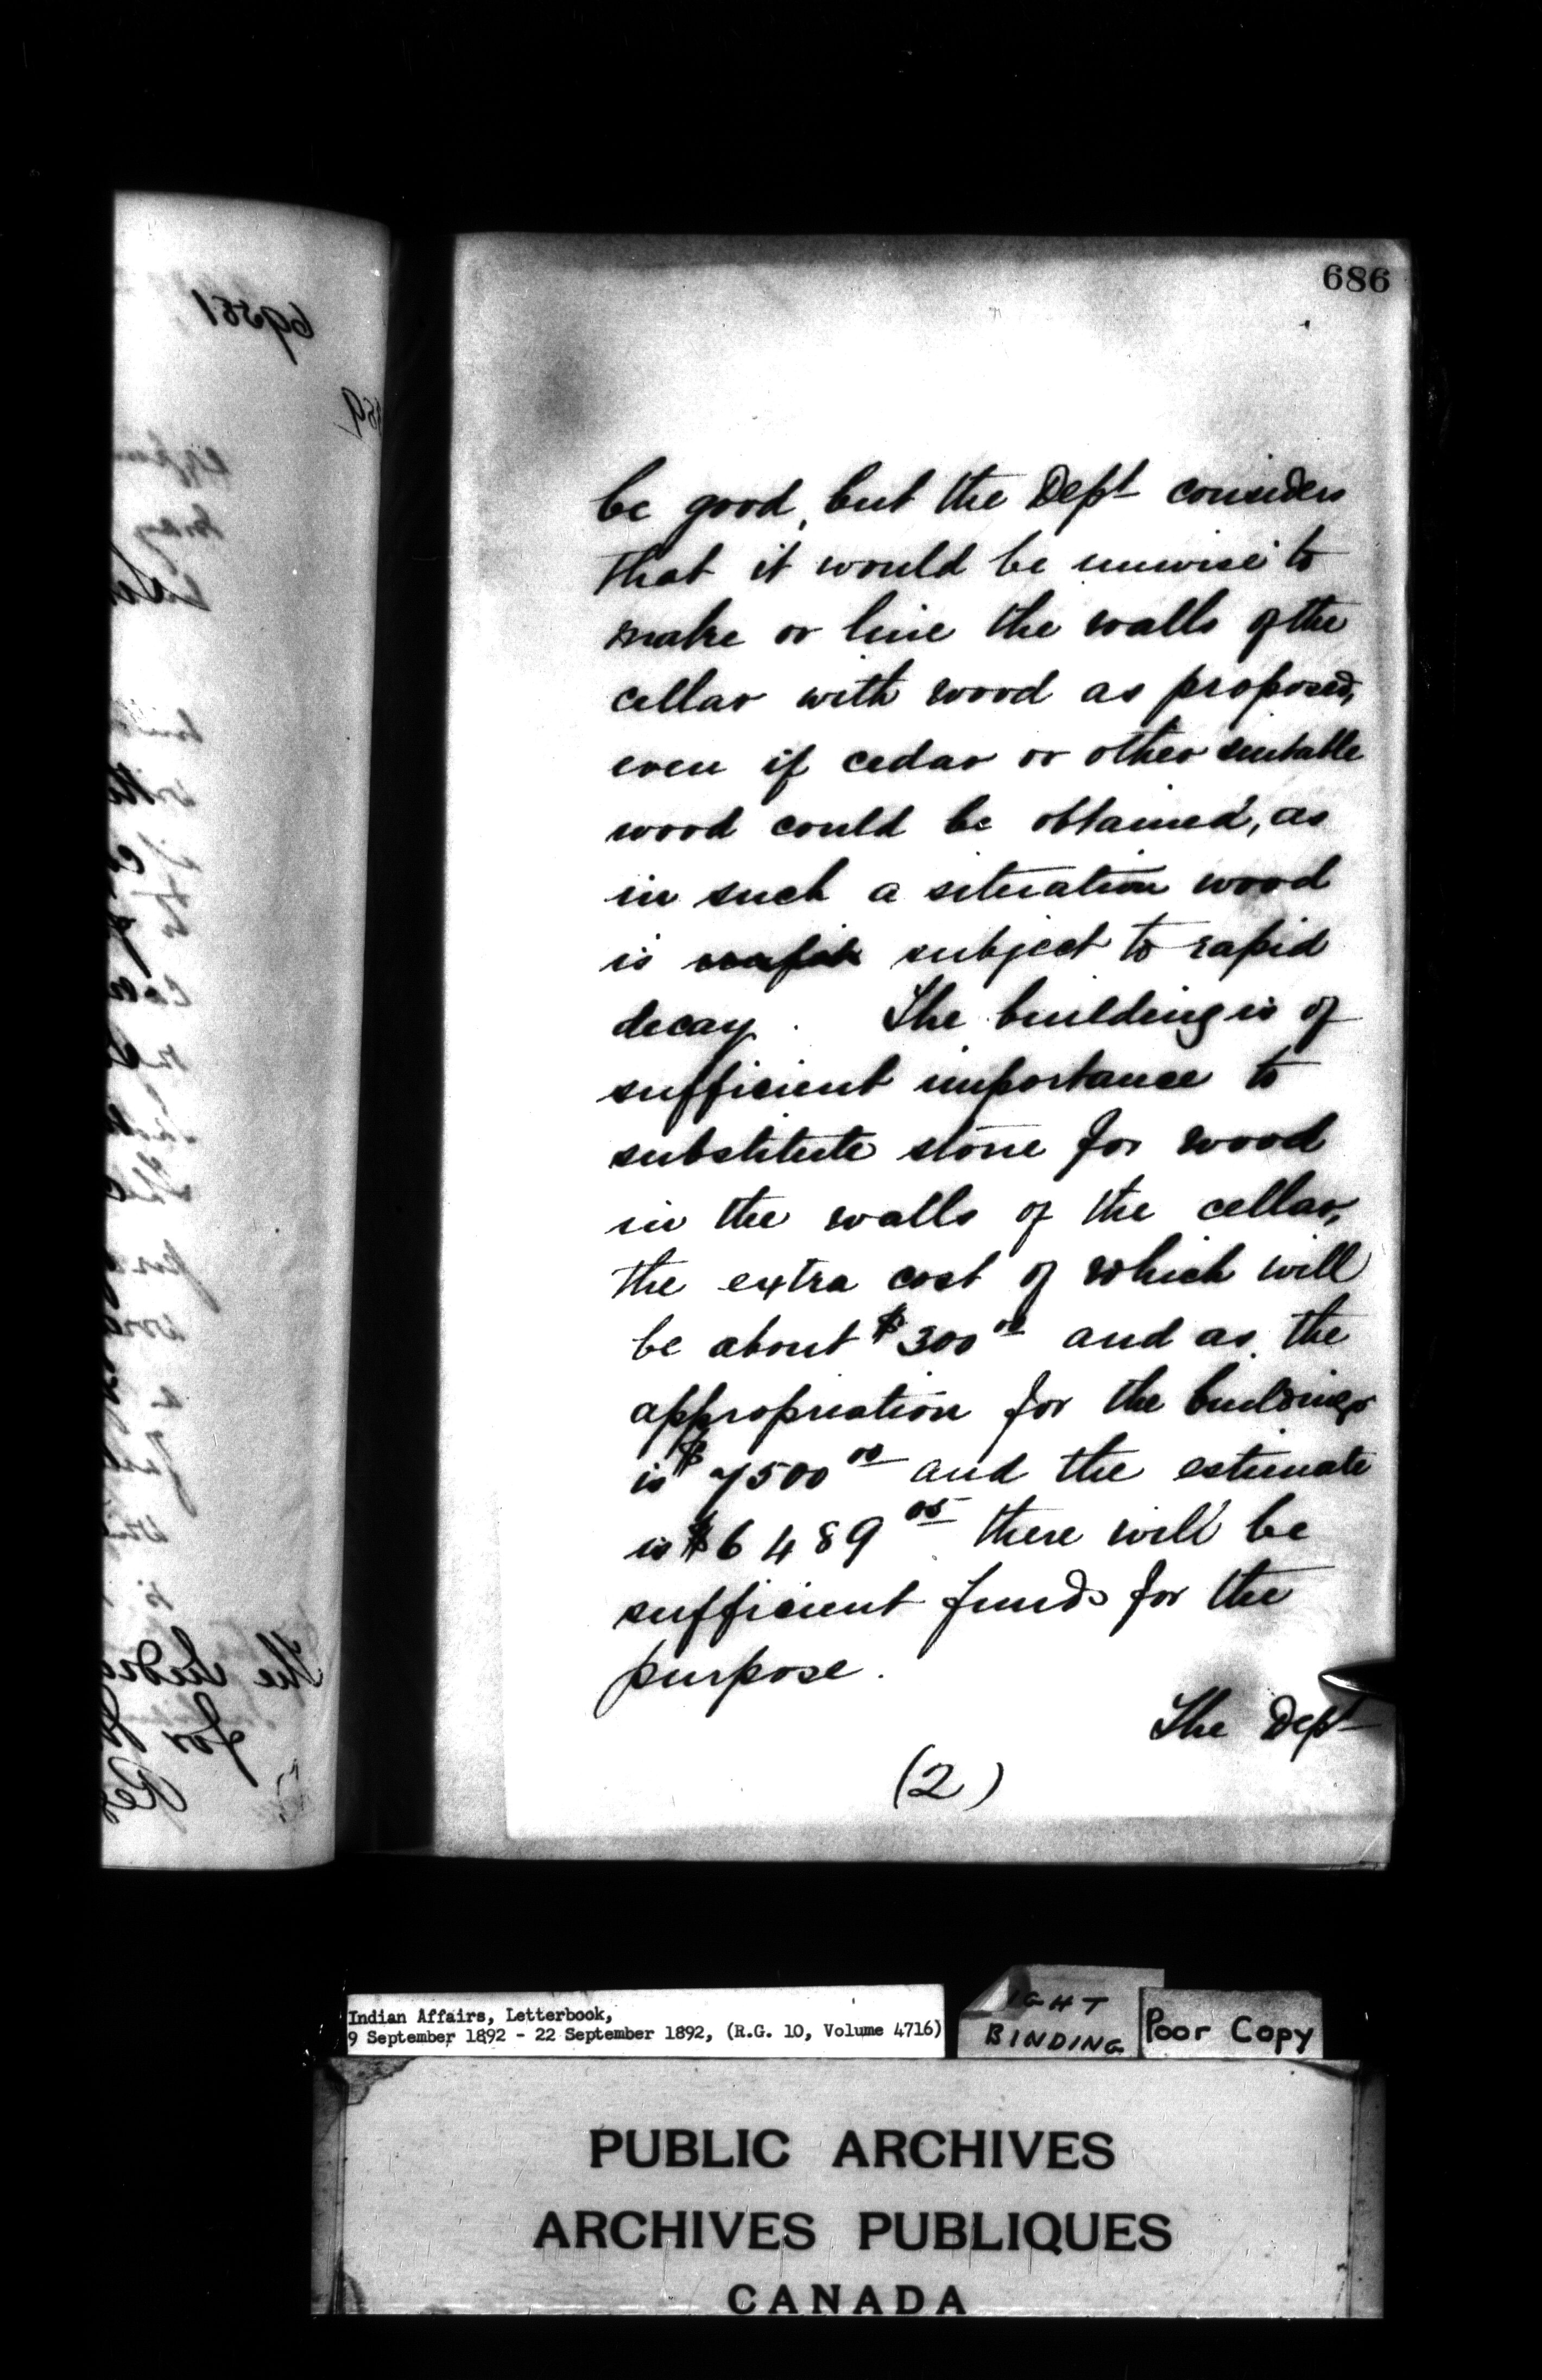 686
69561
be good, but the Dept considers
that it would be unwise to
make or line the walls of the
cellar with wood as proposed,
even if cedar or other suitable
wood could be obtained, as
in such a situation wood
is subject to rapid
decay. The building is of
sufficient importance to
substitute stone for wood
in the walls of the cellar,
the extra cost of which will
be about $300 00 and as the
appropriation for the buildings
is $7500 00 and the estimate
is $6489 05 there will be
sufficient funds for the
purpose.
The Dept
(2)
The
for
Indian Affairs, Letterbook,
9 September 1892 - 22 September 1892, (R.G. 10, Volume 4716)
IGHT
BINDING
Poor Copy
PUBLIC ARCHIVES
ARCHIVES PUBLIQUES
CANADA